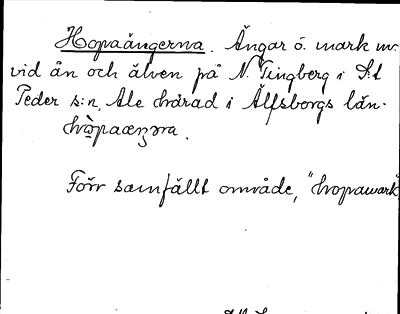 Hopaängerna. Ängar ö. mark m.
vid ån och älven på N. Tingberg i S:t
Peder s:n, Ale härad i Älfsborgs län.
Förr samfällt område, "hopamark"